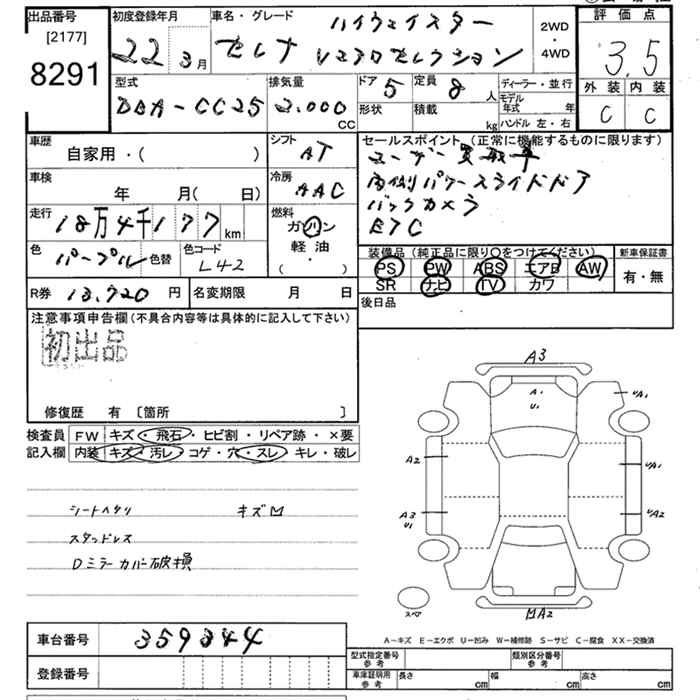 出品番号
[2177]
8291
初度登録年月
22 3月
車名・グレード
ハイウェイスター
セレナ Vエアロセレクション
2WD
・
4WD
評価点
3.5
外装 内装
C C
型式
DBA-CC25
排気量
2.000
CC
ドア 5
定員 8 人
形状
積載 kg
ディーラー・並行
モデル年式 年
ハンドル 左・右
車歴
自家用・( )
シフト
AT
車検
年 月( 日)
冷房
AAC
走行
18万4千177 km
燃料
ガソリン
軽油
( )
色
パープル 色替
色コード
L42
R券 13.720 円
名変期限 月 日
セールスポイント (正常に機能するものに限ります)
ユーザー買取車
両側パワースライドドア
バックカメラ
ETC
装備品 (純正品に限り〇をつけてください)
PS PW ABS エアB AW
SR ナビ TV カワ
新車保証書
有・無
後日品
注意事項申告欄 (不具合内容等は具体的に記入して下さい)
初出品
修復歴 有 〔箇所 〕
検査員記入欄
FW キズ・飛石・ヒビ割・リペア跡・×要
内装 キズ・汚レ・コゲ・穴・スレ・キレ・破レ
シートヘタリ キズM
スタッドレス
Dミラーカバー破損
A3
A1
U1
UA1
A2
UA1
A3
U1
UA2
スペア
MA2
A-キズ E-エクボ U-凹み W-補修跡 S-サビ C-腐食 XX-交換済
車台番号 359344
登録番号
型式指定番号 参考
類別区分番号 参考
車庫証明用 参考
長さ cm
幅 cm
高さ cm